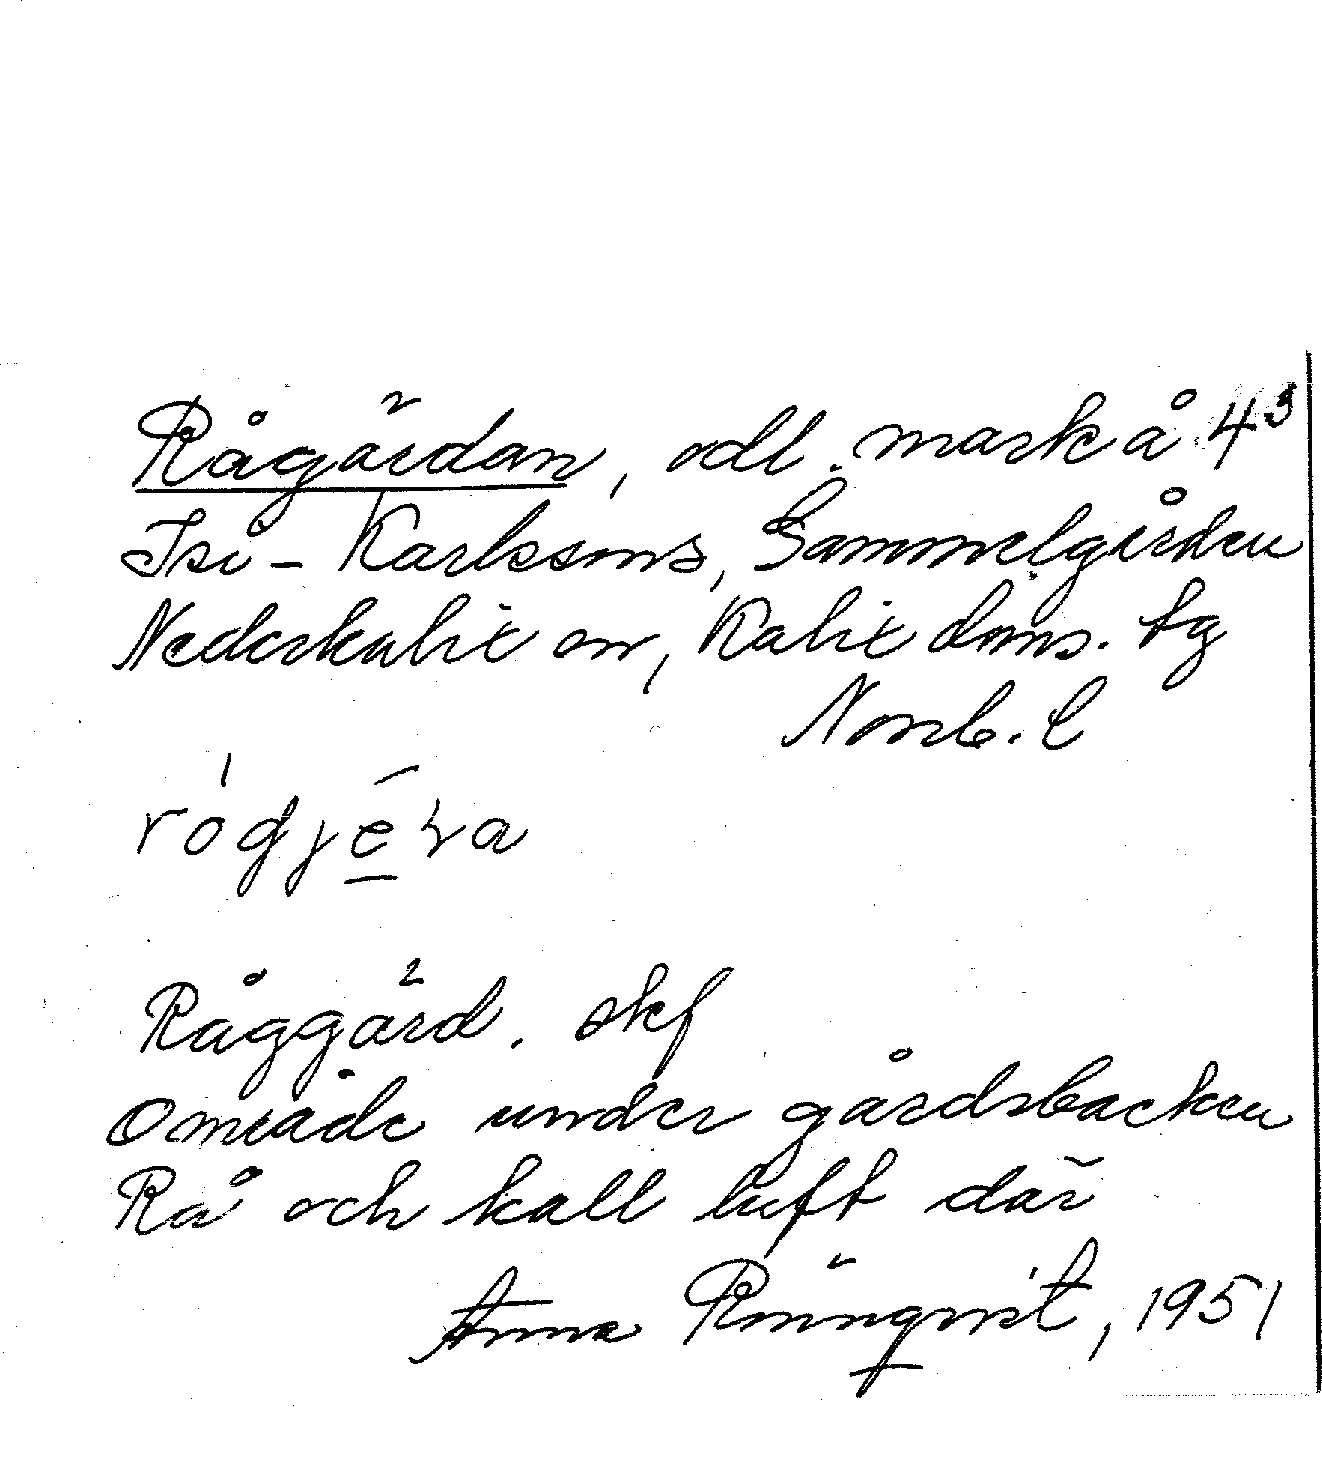 Rågärdan, odl. mark å 4³
Isi-Karlssons, Gammelgården
Nederkalix sn, Kalix doms. tg
Norrb. l
rógjéra
Råggärd. skf
Område under gårdsbacken
Rå och kall luft där
Anna Rönnqvist, 1951